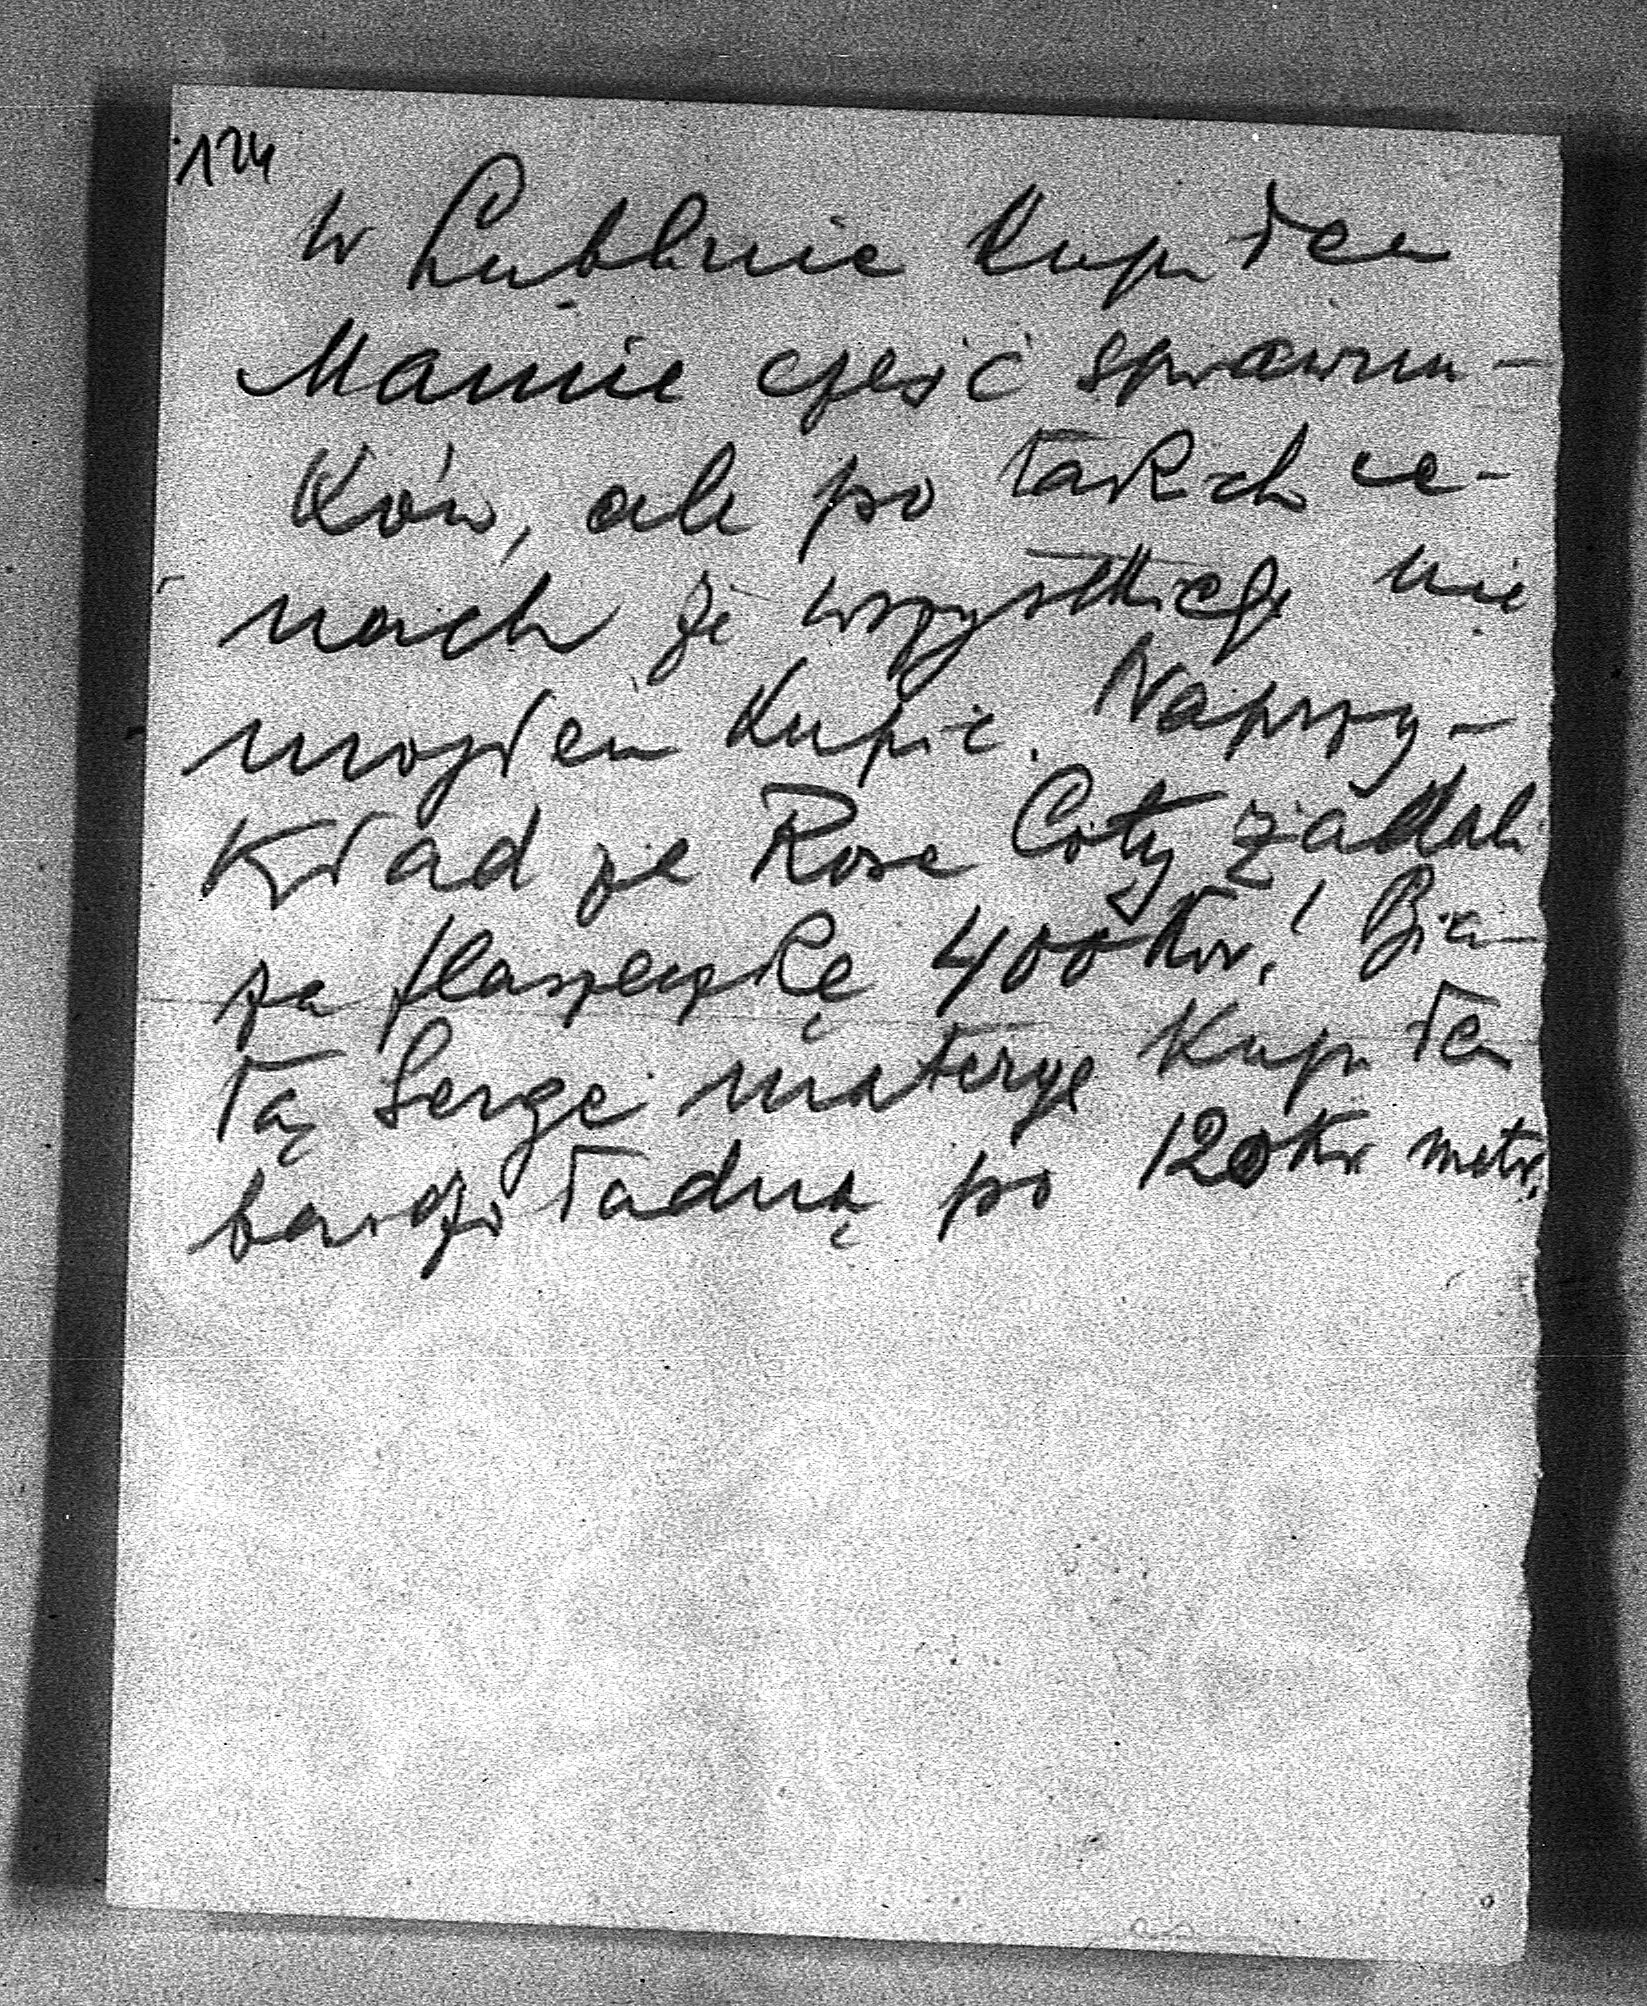 124
w Lublinie kupiłem
Mamie część sprawun-
ków, ale po takich ce-
nach że wszystkiego nie
mogłem kupić. Naprzy-
kład za Rose Coty żądali
za flaszeczkę 400 kor.! Bia-
łą Serge materyę kupiłem
bardzo ładną po 120 kor metr.